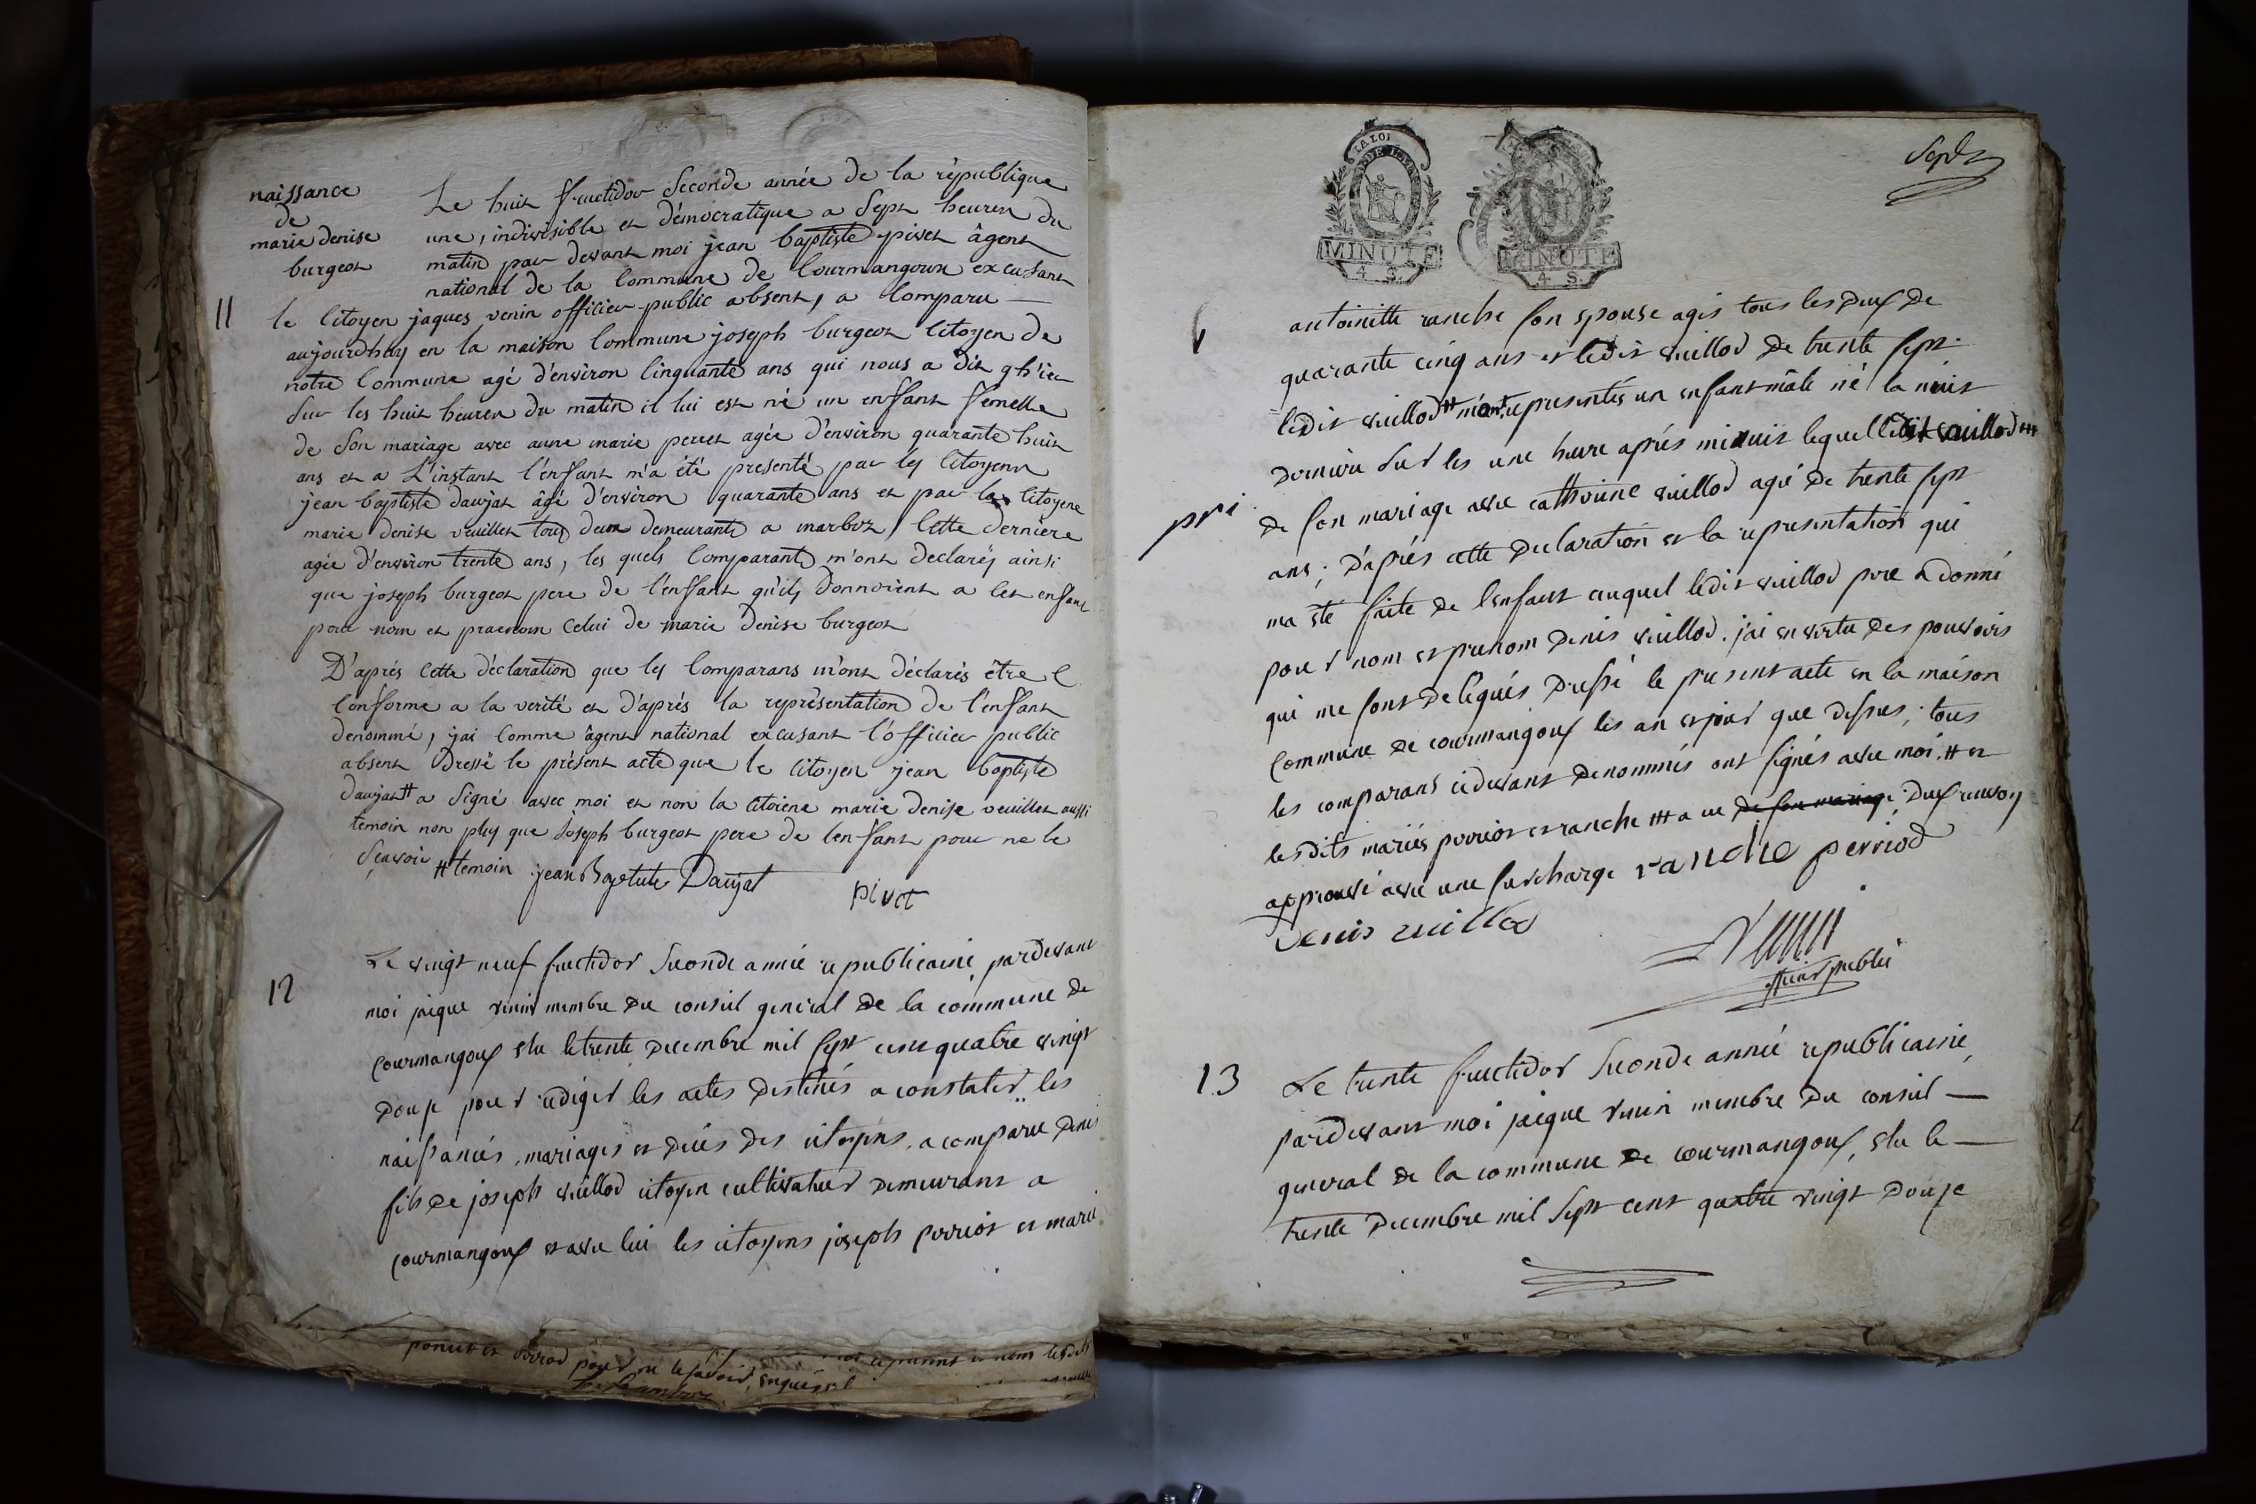 naissance
de
marie denise
burgeot
11
Le huit fructidor Seconde année de la république
une, indivisible et démocratique a Sept heures du
matin par devant moi jean baptiste pivet âgent
national de la Commune de Courmangoux excusant
le Citoyen jaques venin officier public absent, a Comparu
aujourdhuy en la maison Commune joseph burgeot Citoyen de
notre Commune agé d'environ Cinquante ans qui nous a dit q h'ier
Sur les huit heures du matin il lui est né un enfant femelle
de Son mariage avec anne marie perret agée d'environ quarante huit
ans et a L'instant l'enfant m'a été presenté par les Citoyens
jean baptiste daujat âgé d'environ quarante ans et par la Citoyene
marie denise veuillet tous deux demeurants a marboz, Cette dernière
agée d'environ trente ans, les quels Comparants m'ont declarés ainsi
que joseph burgeot pere de l'enfant qu'ils donnoient a Cet enfant
pour nom et praenom Celui de marie denise burgeot
D'aprés Cette déclaration que les Comparans m'ont déclarés être
Conforme a la verité et d'aprés la représentation de l'enfant
denommé, jai Comme âgent national excusant l'officier public
absent Dressé le présent acte que le Citoyen jean baptiste
daujat # a Signé avec moi et non la Citoiene marie denise veuillet aussi
temoin non plus que joseph burgeot pere de lenfant pour ne le
Sçavoir # temoin jean Baptiste Daujat
pivet
12
Le vingt neuf fructidor Seconde année republicaine, pardevant
moi jaique venin membre du conseil general de la commune de
Courmangoux elu le trente decembre mil sept cent quatre vingt
douze pour rediger les actes destinés a constater les
naissances, mariages et décés des citoyens, a comparu denis
fils de joseph vuillod citoyen cultivateur demeurant a
Courmangoux et avec lui les citoyens joseph perriot et marie
pour ne le savoir, enquis
Sept
LA LOI
MINUTE
4 S.
MINUTE
4 S.
antoinette ranche son epouse agés tous les deux de
quarante cinq ans et ledit vuillod de trente sept
ledit vuillod # m'ont representés un enfant mâle né la nuit
derniere sur les une heure aprés minuit lequel ledit vuillod ##
de son mariage avec catherine vuillod agée de trente sept
ans; d'aprés cette declaration et la representation qui
ma été faite de lenfant auquel ledit vuillod pere a donné
pour nom et prenom denis vuillod. j'ai en vertu des pouvoirs
qui me sont delégués dressé le present acte en la maison
commune de courmangoux les an et jour que dessus; tous
les comparans cidevant denommés ont signés avec moi. # et
lesdits mariés perriot et ranche ## a eu de son mariage. deux renvoy
approuvé avec une surcharge ranche perriod
denis vuillod
Venin
officier public
13
Le trente fructidor Seconde année republicaine,
pardevant moi jaique venin membre du conseil
general de la commune de courmangoux, elu le
trente decembre mil Sept cent quatre vingt douze